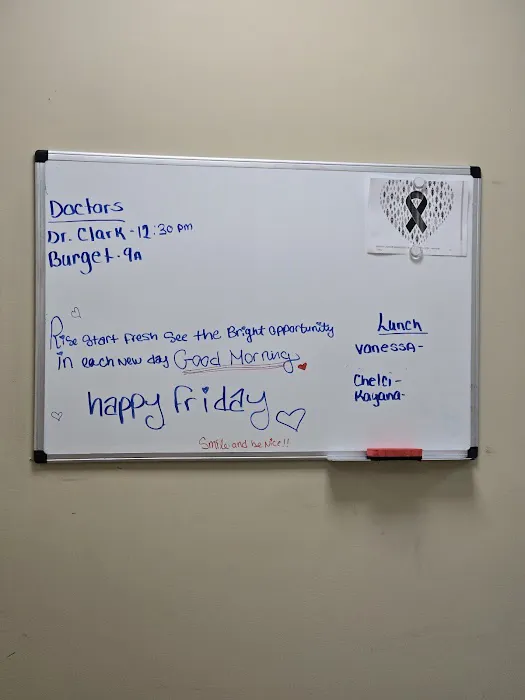 Doctors
Dr. Clark - 12:30 pm
Burget - 9A
Rise Start Fresh See the Bright opportunity
in each new day Good Morning
happy friday
Smile and be Nice!!
Lunch
Vanessa-
Chelci-
Kayana-